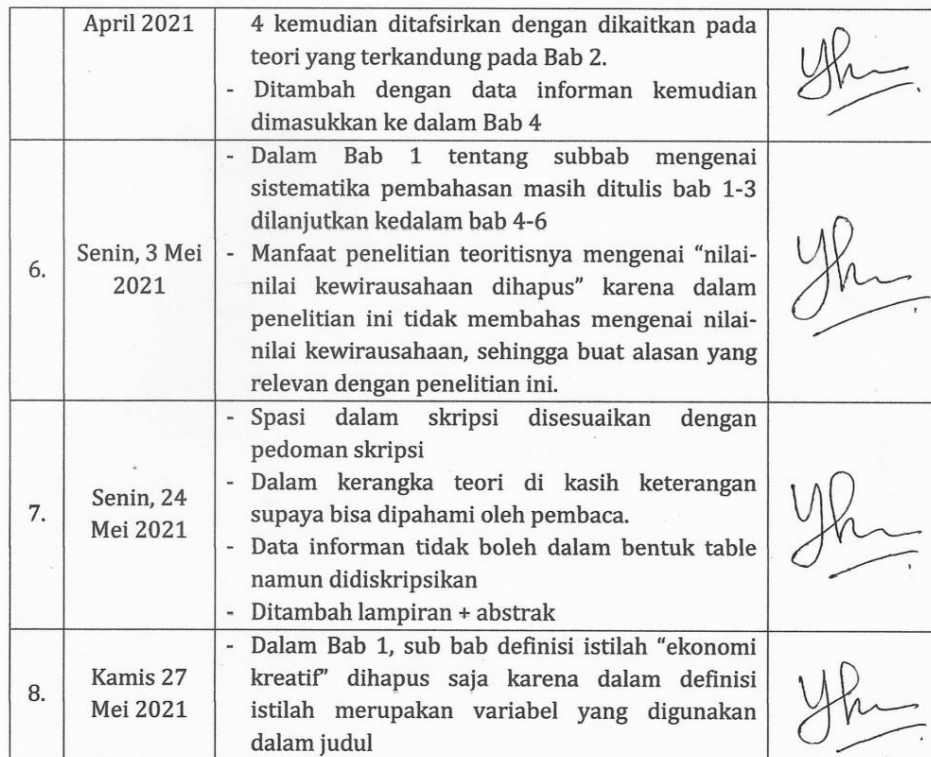 April 2021
4 kemudian ditafsirkan dengan dikaitkan pada
teori yang terkandung pada Bab 2.
- Ditambah dengan data informan kemudian
dimasukkan ke dalam Bab 4
6.
Senin, 3 Mei
2021
- Dalam Bab 1 tentang subbab mengenai
sistematika pembahasan masih ditulis bab 1-3
dilanjutkan kedalam bab 4-6
- Manfaat penelitian teoritisnya mengenai “nilai-
nilai kewirausahaan dihapus” karena dalam
penelitian ini tidak membahas mengenai nilai-
nilai kewirausahaan, sehingga buat alasan yang
relevan dengan penelitian ini.
7.
Senin, 24
Mei 2021
- Spasi dalam skripsi disesuaikan dengan
pedoman skripsi
- Dalam kerangka teori di kasih keterangan
supaya bisa dipahami oleh pembaca.
- Data informan tidak boleh dalam bentuk table
namun didiskripsikan
- Ditambah lampiran + abstrak
8.
Kamis 27
Mei 2021
- Dalam Bab 1, sub bab definisi istilah “ekonomi
kreatif” dihapus saja karena dalam definisi
istilah merupakan variabel yang digunakan
dalam judul